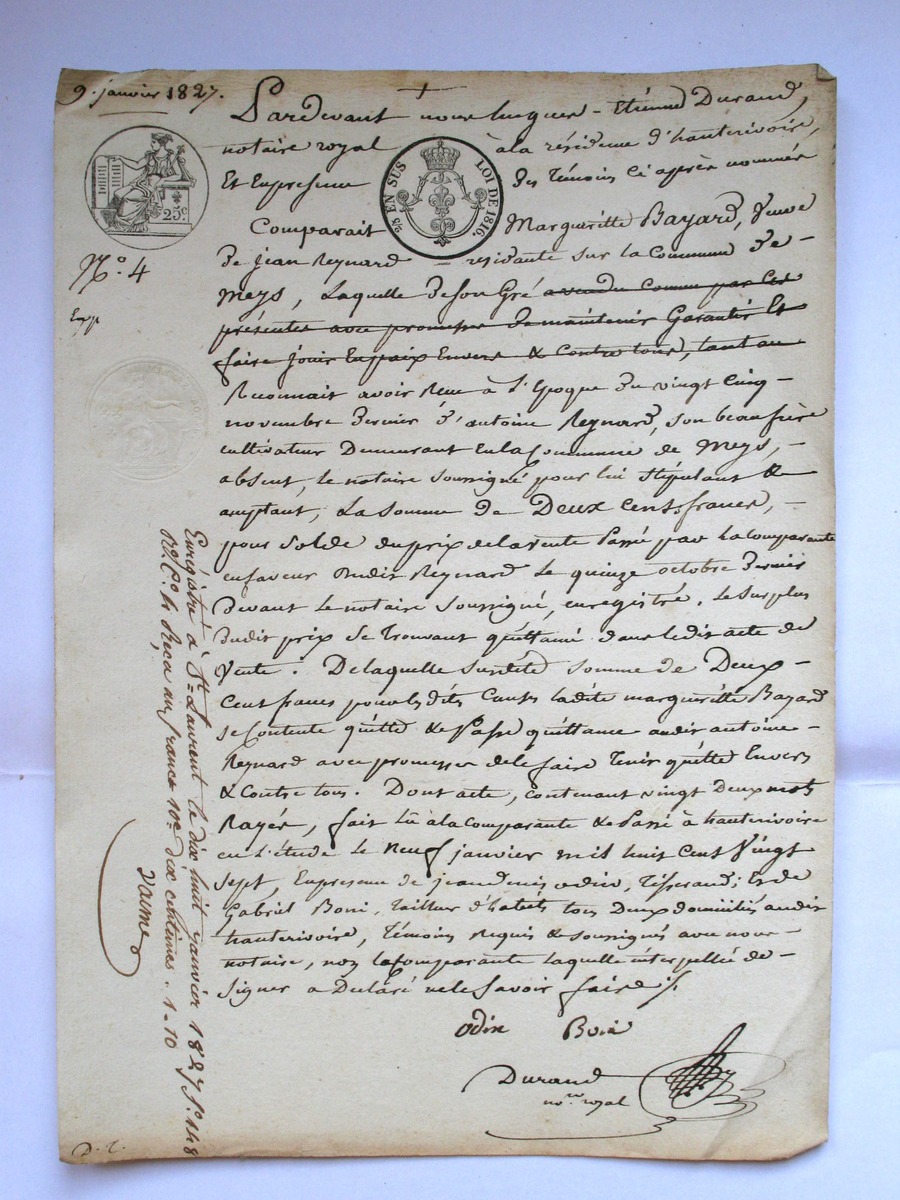 9. janvier 1827.
Pardevant nous hugues = Etienne Durand,
notaire royal à la résidence d'hauterivoire,
Et En presence des Témoins Ci après nommés
25 EN SUS LOI DE 1816.
25c
Comparait Margueritte Bayard, Veuve
De jean Reynard = residante sur la Commune De =
N.o 4
Meys, Laquelle De son Gré a vendu comme par Ces
présentes avec promesse De maintenir Garantir Et
faire jouir En paix Envers & Contre tous, tant au
Reconnait avoir Reçu à L'Epoque Du vingt Cinq =
novembre Dernier D'antoine Reynard, son beau frère
cultivateur Demeurant En la Commune de Meys, =
absent, le notaire soussigné pour lui Stipulant &
acceptant, La somme De Deux Cents francs, =
pour Solde du prix de la vente Passé par la Comparante
en faveur Dudit Reynard le quinze octobre Dernier
Devant le notaire soussigné, enregistré. le surplus
Dudit prix se Trouvant quittancé Dans le dit acte de
Vente. De laquelle susdite Somme De Deux =
Cent francs pour les dits Causes ladite margueritte Bayard
se Contente quitte & Passe quittance audit antoine =
Reynard avec promesse de le faire Tenir quitte Envers
& Contre tous. Dont acte, contenant vingt Deux mots
Rayés, fait lû à la comparante & Passé à hauterivoire
en L'étude le Neuf janvier mil huit Cent Vingt
Sept, En presence de jean denis odin, Tisserand; Et de
Gabriel Boni, tailleur d'habits tous Deux domiciliés audit
hauterivoire, Témoins Requis & soussignés avec nous =
notaire, non la Comparante laquelle interpellée de =
Signer a Déclaré ne le Savoir faire /.
odin Boni
Durand
no.re royal
Enregistré à St. Laurent le dix huit janvier 1827 f.o 148
Reçu un franc 10c dix centimes. 1-10